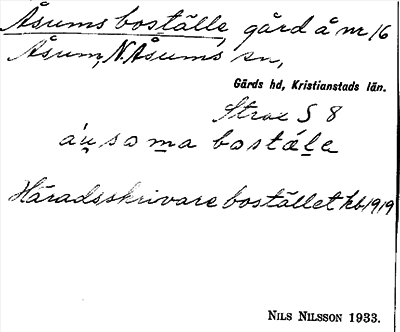 Åsums boställe, gård å nr 16
Åsum, N. Åsums sn,
Gärds hd, Kristianstads län.
Strax S 8
áu̯soma bostále
Häradsskrivare bostället kb 1919
NILS NILSSON 1933.